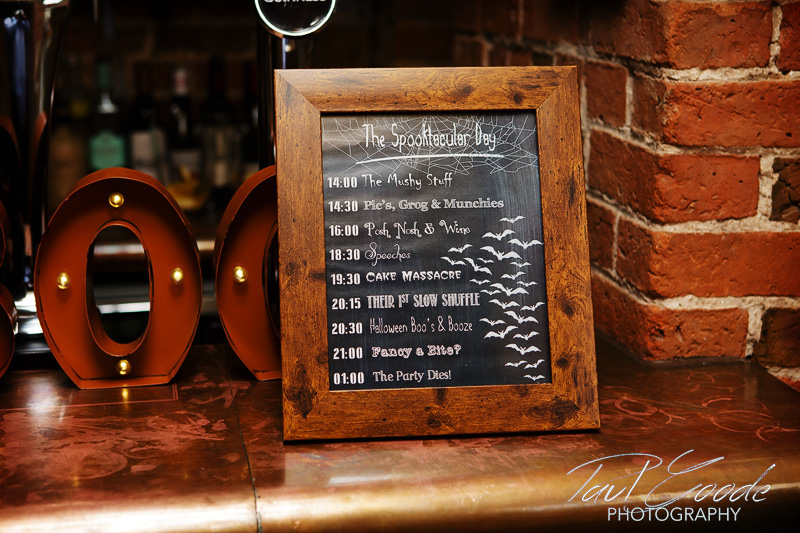 GUINNESS
The Spooktacular Day
14:00 The Mushy Stuff
14:30 Pic's, Grog & Munchies
16:00 Posh, Nosh & Wine
18:30 Speeches
19:30 CAKE MASSACRE
20:15 THEIR 1ST SLOW SHUFFLE
20:30 Halloween Boo's & Booze
21:00 Fancy a Bite?
01:00 The Party Dies!
OO
Paul Goode
PHOTOGRAPHY